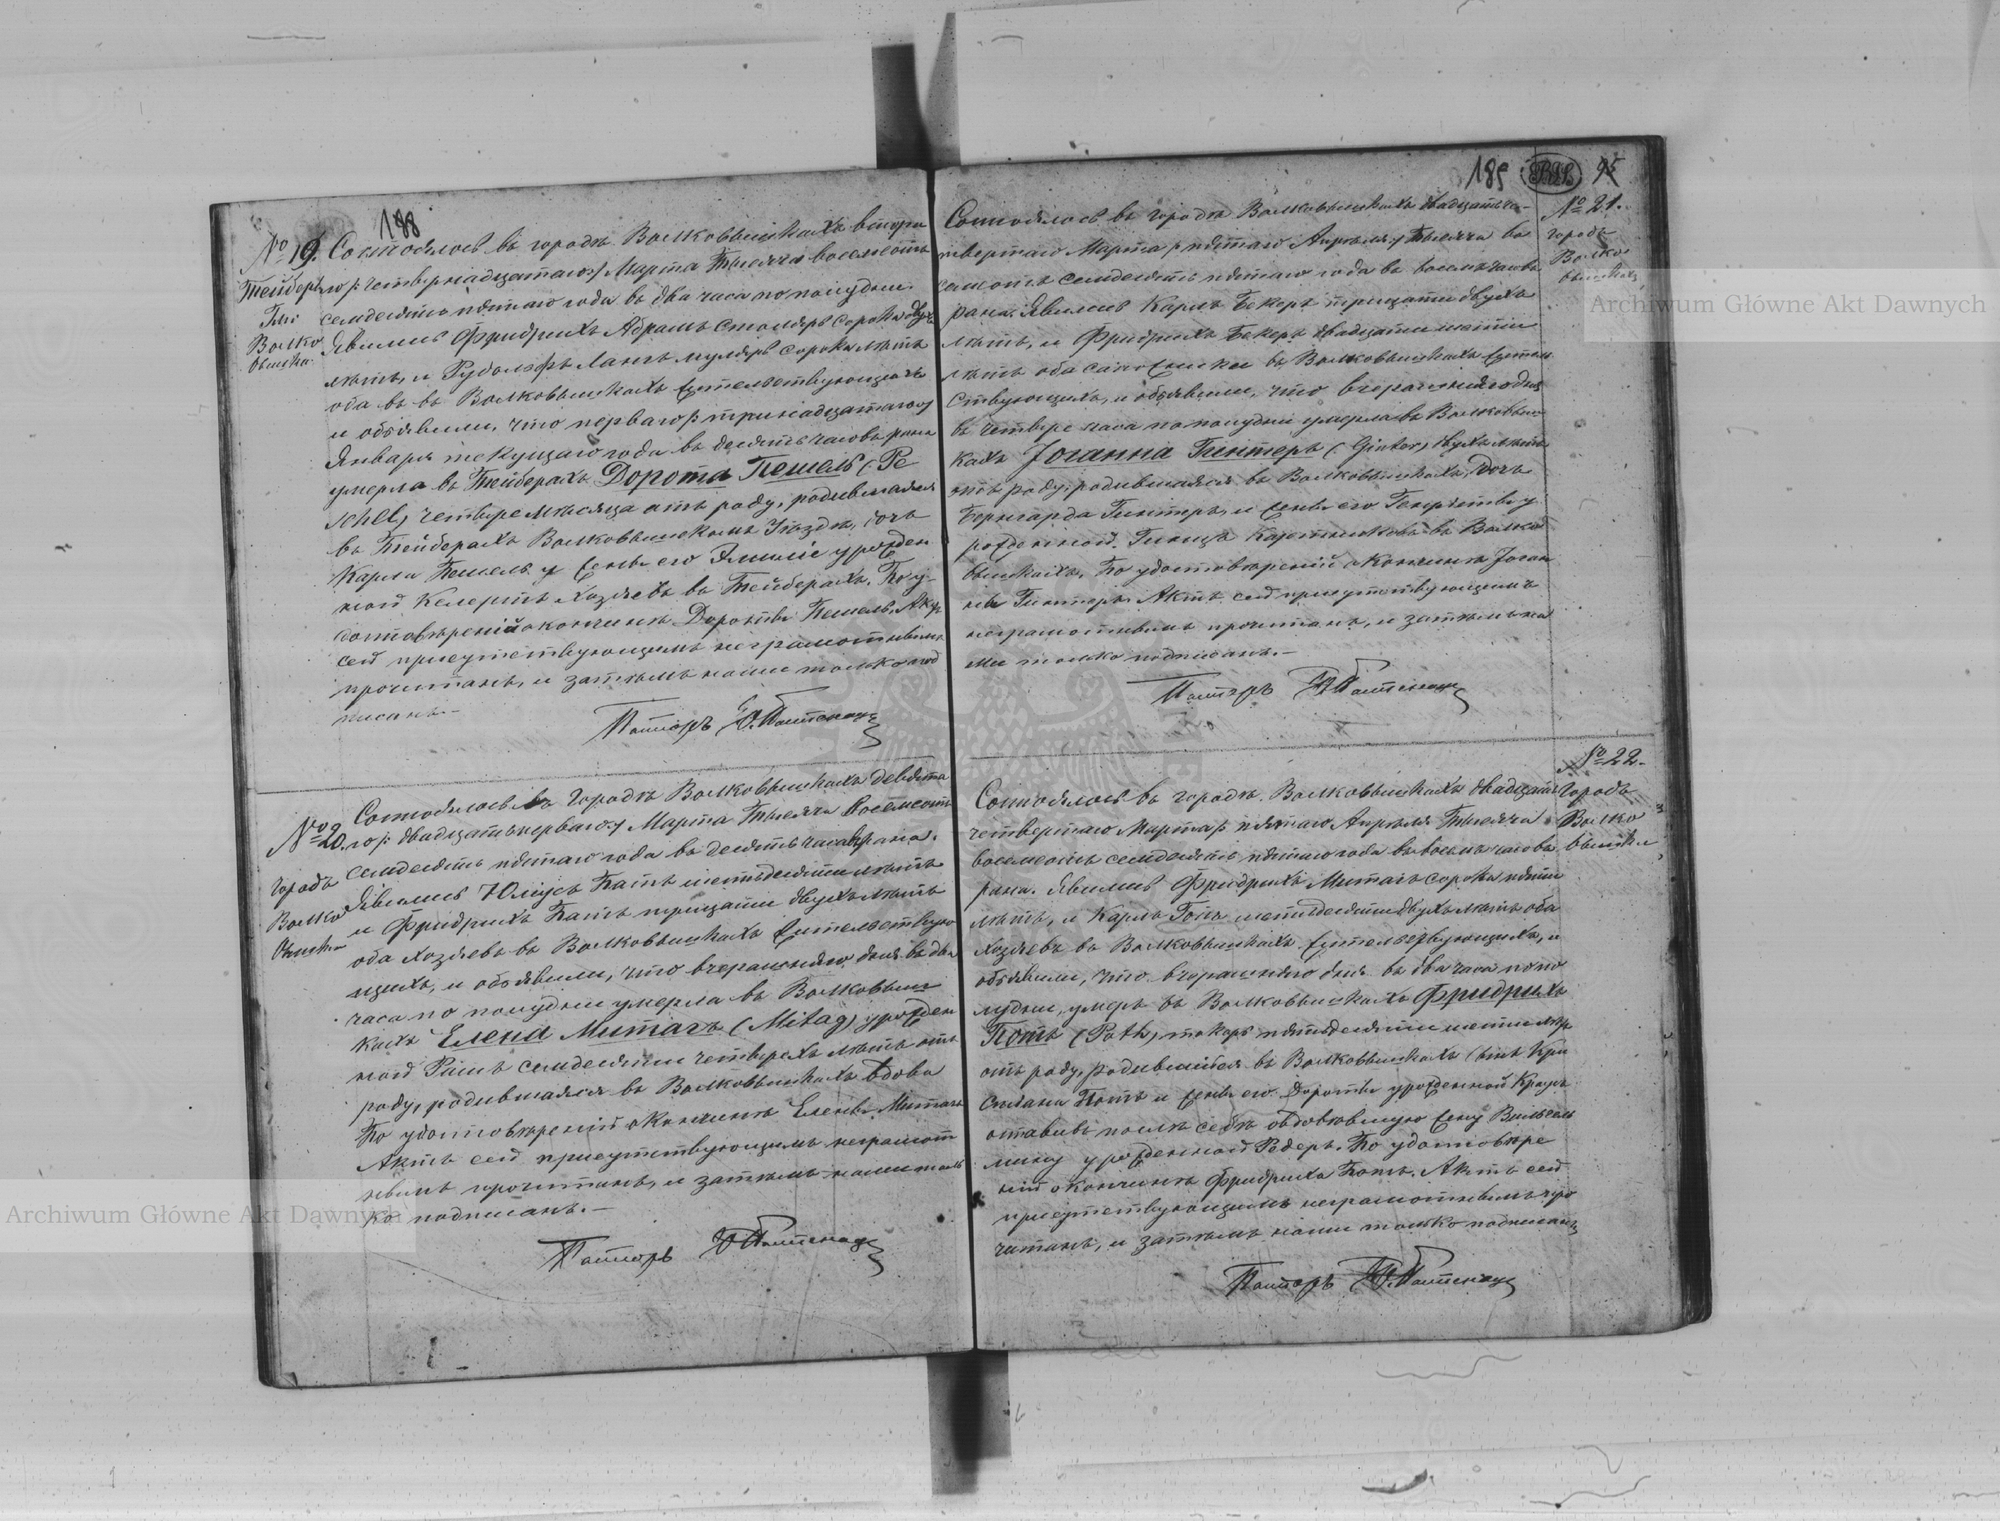 188
№ 19.
Тейберы
Гми
Волко
вышки.
Состоялось въ городѣ Волковышкахъ втора
го /: четырнадцатаго :/ Марта тысяча восемьсотъ
семдесятъ пятаго года въ два часа по полудни.
Явились Фридрихъ Абрамъ столяръ сорока двухъ
лѣтъ, и Рудольфъ Лангъ муляръ сорока лѣтъ
оба въ въ Волковышкахъ жительствующіе
и объявили, что перваго /: тринадцатаго :/
Января текущаго года въ десять часовъ рана
умерла въ Тейберахъ Дорота Пешель (: Pe
schel) четыре мѣсяца отъ роду, родившаяся
въ Тейберахъ Волковышскомъ Уѣздѣ, дочь
Карла Пешель и жены его Эмиліе урожден
ной Келертъ хозяевъ въ Тейберахъ. По у-
достовѣреній о кончинѣ Дороты Пешель, Актъ
сей присутствующимъ неграмотнымъ
прочитанъ, и затѣмъ нами только под
писанъ.–
Пасторъ
№ 20.
городъ
Волко
вышки
Состоялось въ городѣ Волковышкахъ девята
го /: двадцать перваго :/ Марта тысяча восемсотъ
семдесятъ пятаго года въ десять часовъ рана.
Явились Юлюсъ Патъ шестьдесяти лѣтъ
и Фридрихъ Патъ тридцати двухъ лѣтъ
оба хозяевъ въ Волковышкахъ жительствую
щихъ, и объявили, что вчерашняго дня въ два
часа по полудни умерла въ Волковыш
кахъ Елена Митагъ (Mitag) урожден
ной Рашъ семдесяти четырехъ лѣтъ отъ
роду, родившаяся въ Волковышкахъ вдова
По удостовѣреній о кончинѣ Елены Митагъ
Актъ сей присутствующимъ неграмот
нымъ прочитанъ, и затѣмъ нами толь
ко подписанъ.–
Пасторъ
189 95
№ 21.
городъ
Волко
вышки
Состоялось въ городѣ Волковышкахъ двадцать че-
твертаго Марта /: пятаго Апрѣля :/ тысяча во
семсотъ семдесятъ пятаго года въ восемь часовъ
рана. Явились Карлъ Бекеръ тридцати двухъ
лѣтъ, и Фридрихъ Бекеръ двадцати шести
лѣтъ оба сапожники въ Волковышкахъ житель
ствующихъ, и объявили, что вчерашняго дня
въ четыре часа по полудни умерла въ Волковыш
кахъ Іоганна Гинтеръ (: Ginter) двухъ лѣтъ
отъ роду, родившаяся въ Волковышкахъ, дочь
Бернгарда Гинтеръ, и жены его Генріетты у
рожденной Гинцъ каретниковъ въ Волко
вышкахъ. По удостовѣреній о кончинѣ Іоган
ны Гинтеръ, Актъ сей присутствующимъ
неграмотнымъ прочитанъ, и затѣмъ на
ми только подписанъ.–
Пасторъ
№ 22.
городъ
Волко
вышки
Состоялось въ городѣ Волковышкахъ двадцать
четвертаго Марта /: пятаго Апрѣля тысяча
восемсотъ семдесятъ пятаго года въ восемь часовъ
рана. Явились Фридрихъ Митагъ сорока пяти
лѣтъ, и Карлъ Гопъ шестидесяти двухъ лѣтъ оба
хозяевъ въ Волковышкахъ жительствующихъ, и
объявили, что вчерашняго дня въ два часа по по
лудни, умеръ въ Волковышкахъ Фридрихъ
Потъ (Poth) токаръ пятьдесяти шести лѣтъ
отъ роду, родившійся въ Волковышкахъ сынъ Кри
стіана Потъ и жены его Дороты урожденной
оставивъ послѣ себѣ овдовѣвшую жену Вильгель
мину урожденной Редеръ. По удостовѣре
ній о кончинѣ Фридриха Потъ. Актъ сей
присутствующимъ неграмотнымъ про
читанъ, и затѣмъ нами только подписанъ
Пасторъ
Archiwum Główne Akt Dawnych
Archiwum Główne Akt Dawnych